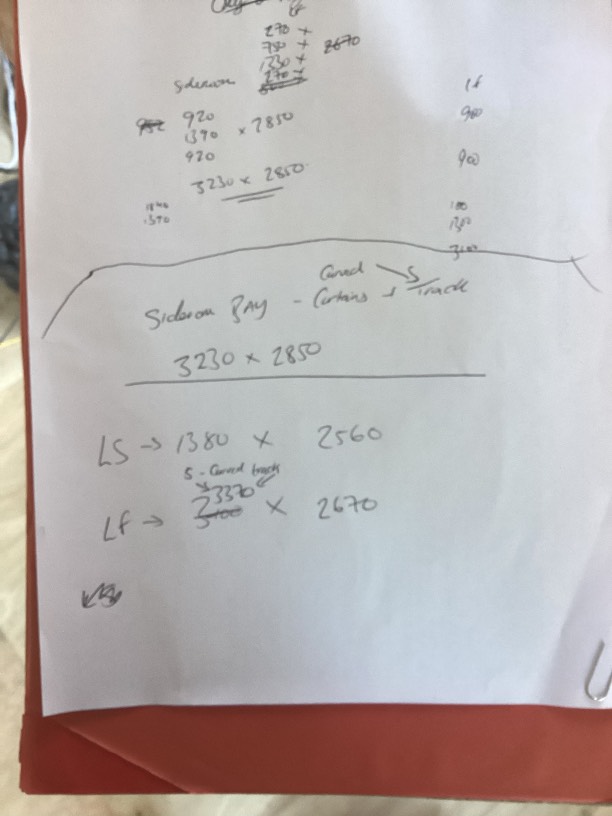 270 x
750 x 2670
1230 x
270 x
Sideroom
Lf
920
900
1390 x 2850
920
900
3230 x 2850
1840
1390
100
1300
3400
Curved S
Sideroom BAY - Curtains + Track
3230 x 2850
LS → 1380 x 2560
S - Curved track
3370
Lf → x 2670